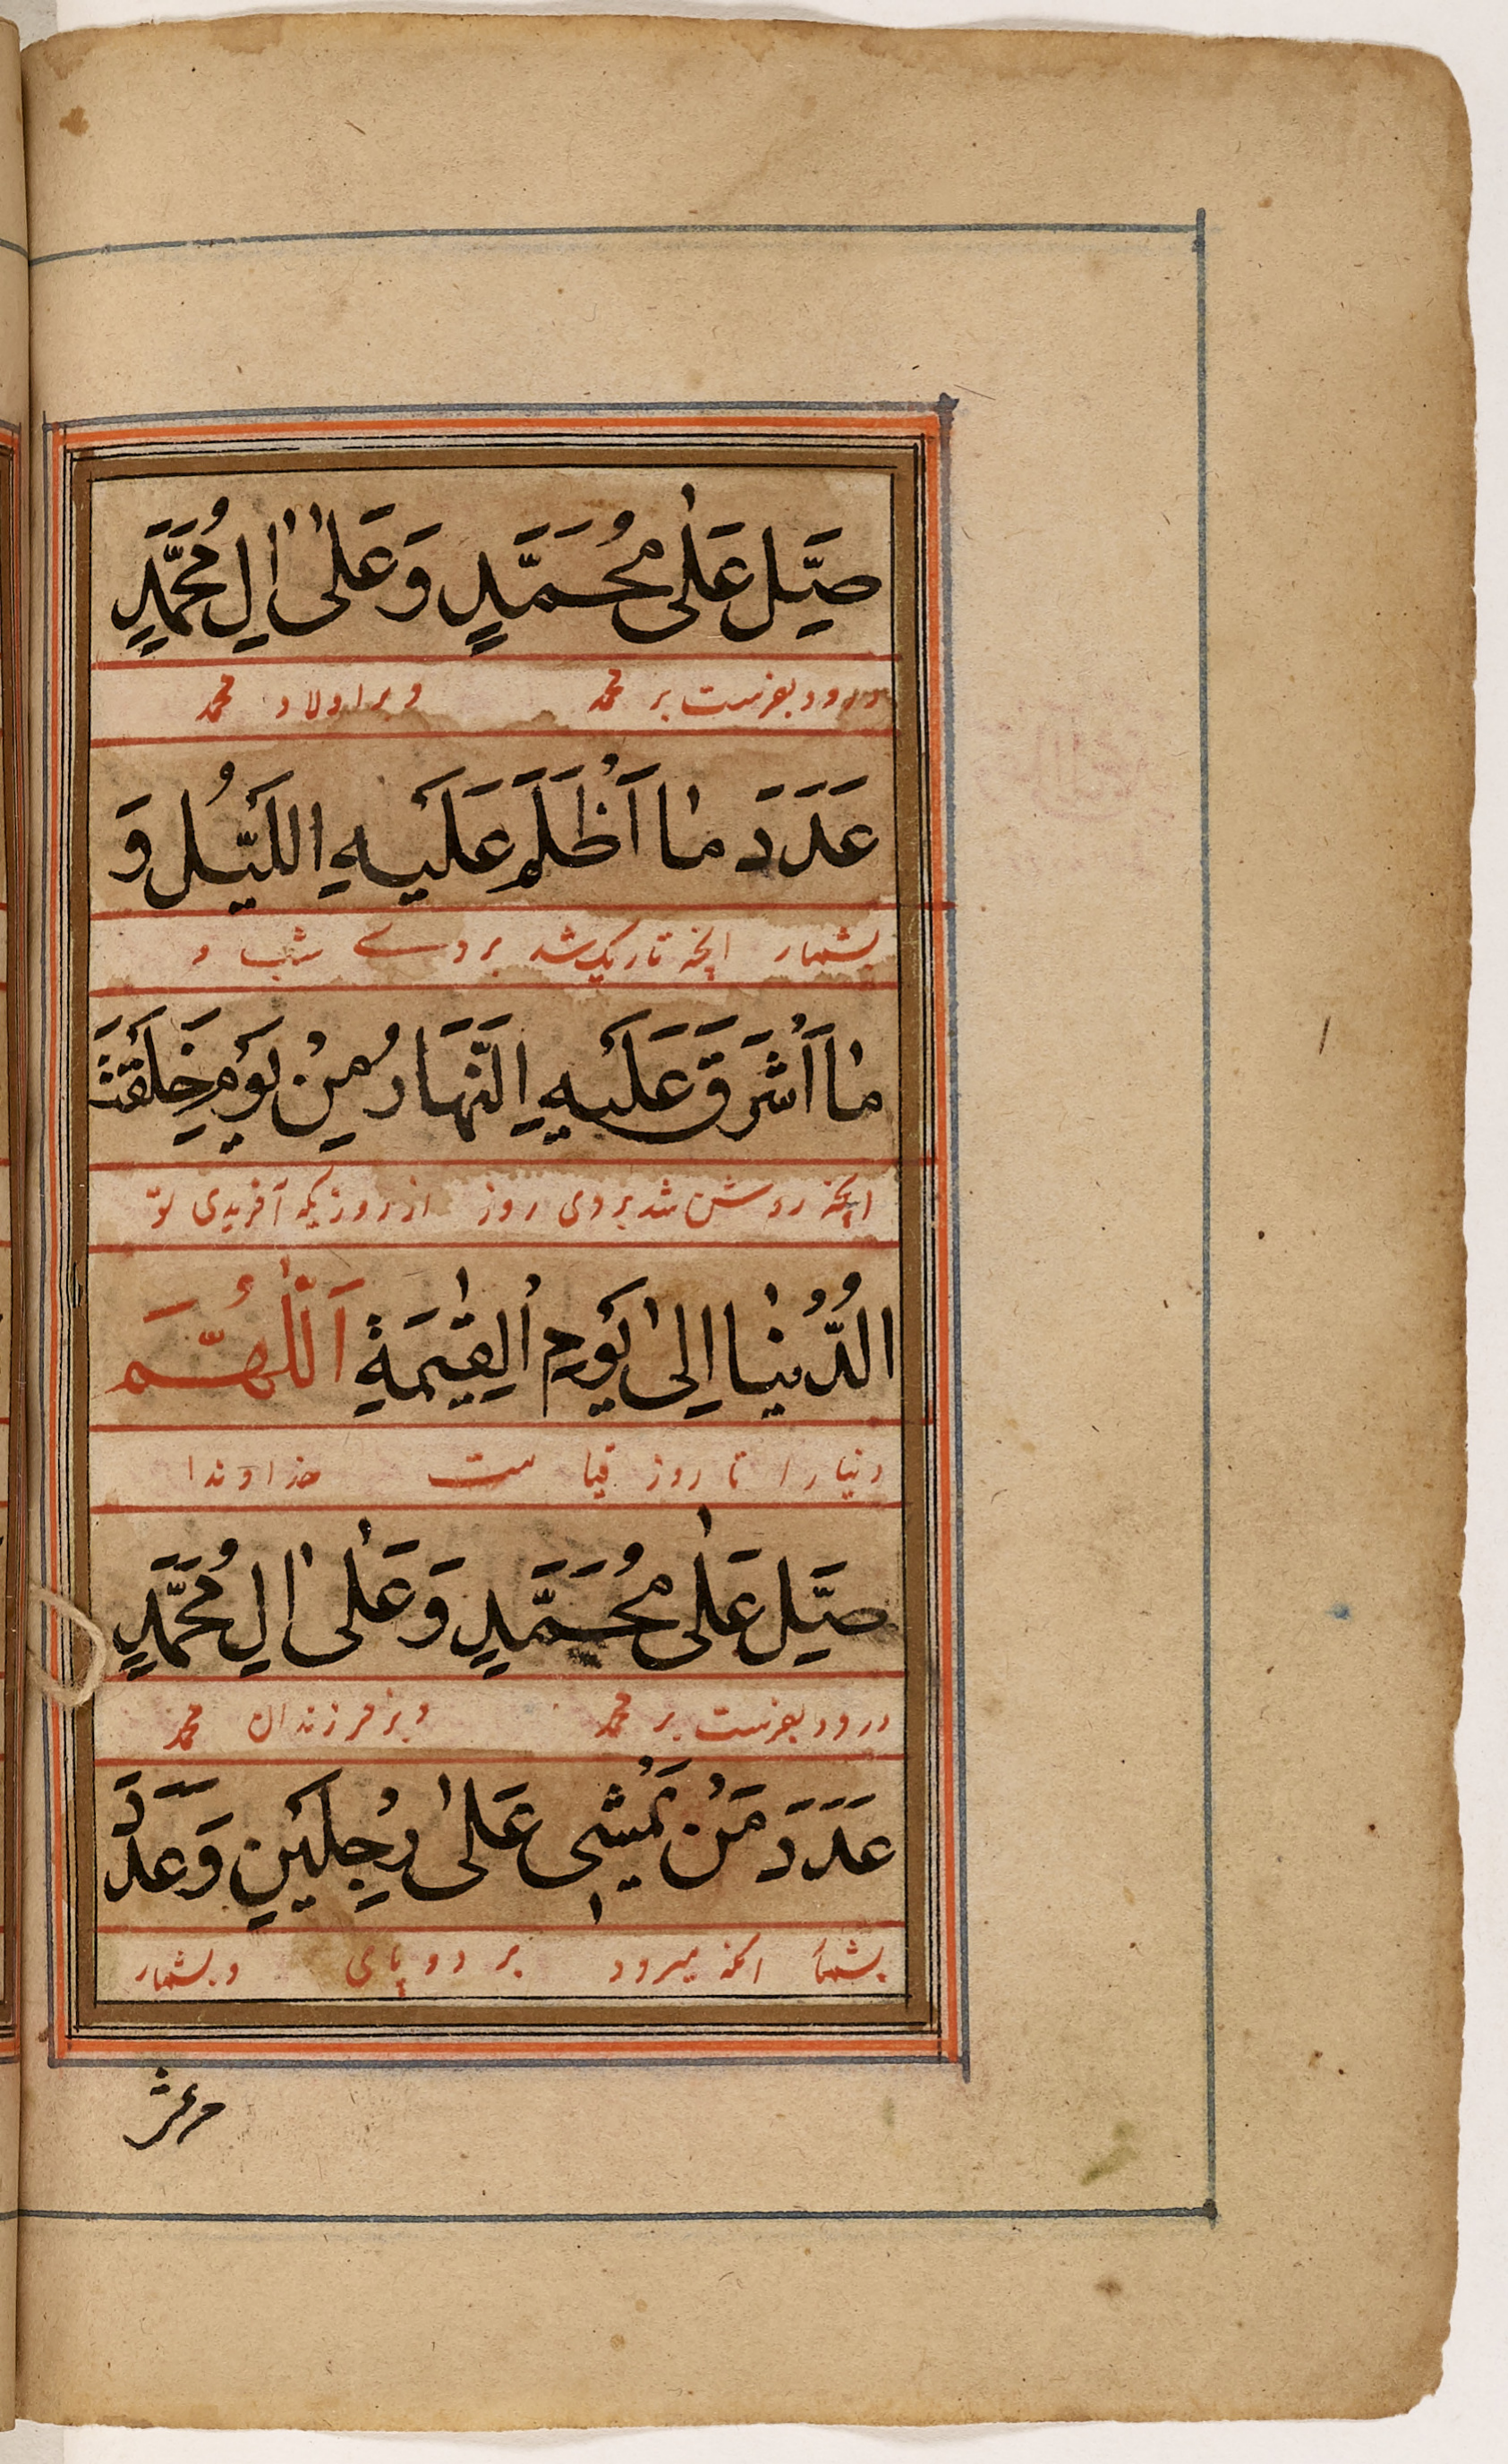 صَلِّ عَلٰى مُحَمَّدٍ وَعَلٰى اٰلِ مُحَمَّدٍ
درود بفرست بر محمد و بر اولاد محمد
عَدَدَ مٰا اَظْلَمَ عَلَيْهِ اللَّيْلُ وَ
بشمار انچه تاریک شد بر وے شب و
مٰا اَشْرَقَ عَلَيْهِ النَّهَارُ مِنْ يَوْمِ خَلَقْتَ
انچه روشن شد بر وی روز از روزیکه آفریدی تو
الدُّنْيٰا اِلىٰ يَوْمِ الْقِيٰمَةِ اَللّٰهُمَّ
دنیا را تا روز قیامت خداوندا
صَلِّ عَلٰى مُحَمَّدٍ وَعَلٰى اٰلِ مُحَمَّدٍ
درود بفرست بر محمد و بر فرزندان محمد
عَدَدَ مَنْ يَمْشِي عَلىٰ رِجْلَيْنِ وَعَدَدَ
بشمار انکه میرود بر دو پای و بشمار